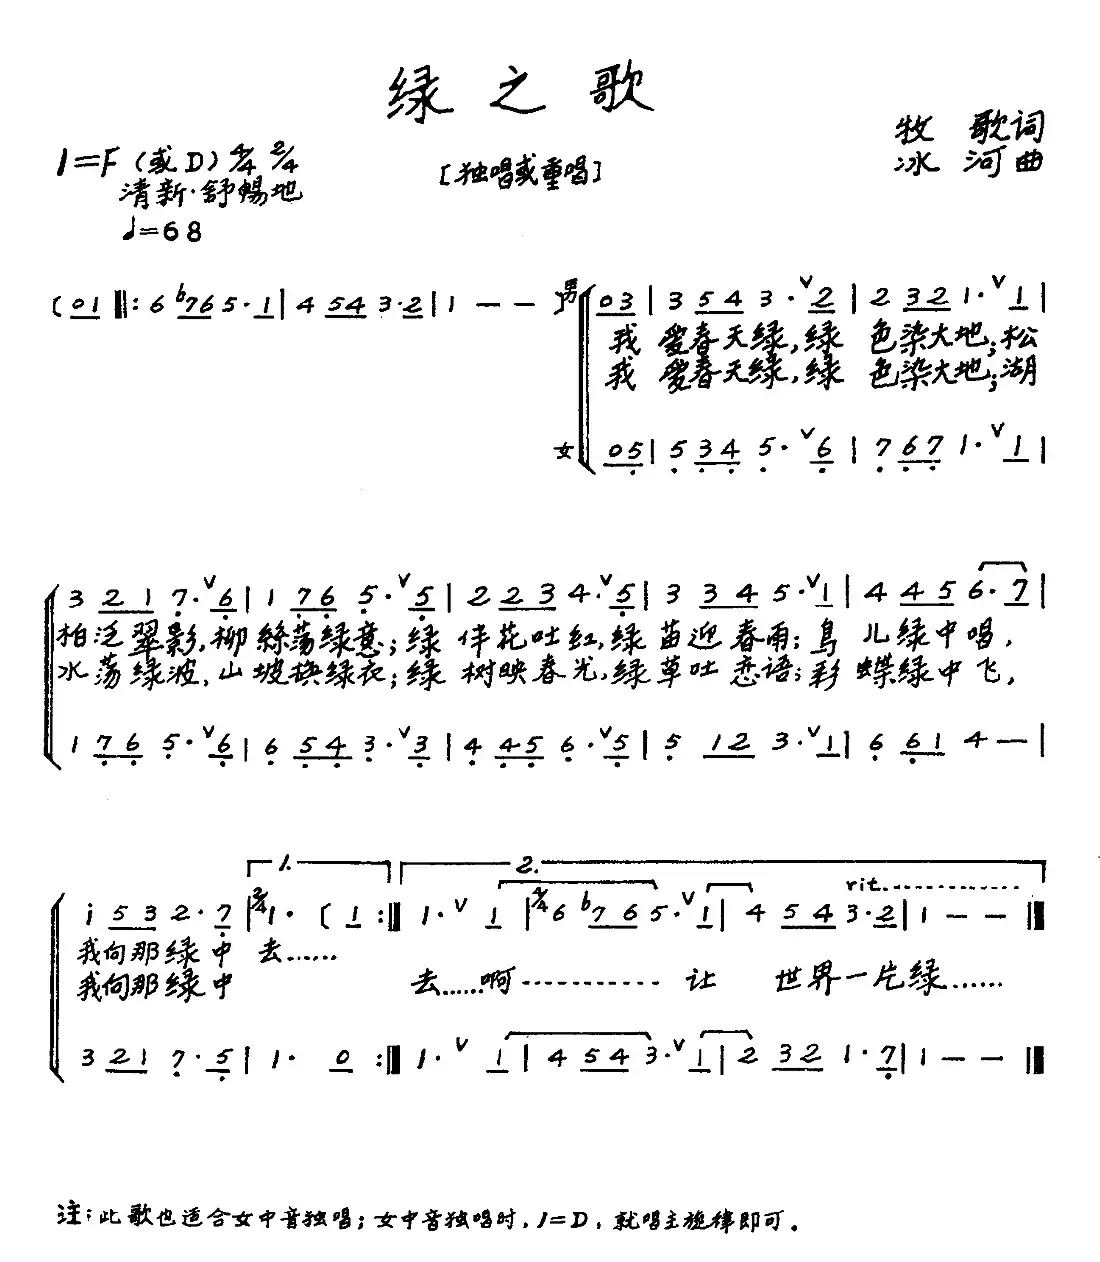 绿之歌
牧 歌词
冰 河曲
1=F(或D) 4/4 2/4
[独唱或重唱]
清新·舒暢地
♩=68
(01 ‖: 6 b765·1 | 4 543·2 | 1 - - )男 03 | 3 543·ˇ2 | 2 321·ˇ1 |
我 爱春天绿,绿 色染大地;松
我 爱春天绿,绿 色染大地;湖
女 05 | 5 345·ˇ6 | 7 671·ˇ1 |
3 217·ˇ6 | 1 765·ˇ5 | 2 234·ˇ5 | 3 345·ˇ1 | 4 456·7 |
柏泛翠影,柳絲荡绿意;绿 伴花吐红,绿 苗迎春雨;鳥 儿绿中唱,
水荡绿波,山坡换绿衣;绿 树映春光,绿草吐恋语;彩 蝶绿中飞,
1 765·ˇ6 | 6 543·ˇ3 | 4 456·ˇ5 | 5 123·ˇ1 | 6 614 - |
1. 2.
rit.
i 532·7 | 2/4 1· (1 :‖ 1·ˇ1 | 4/4 6 b765·ˇ1 | 4 543·2 | 1 - - ‖
我向那绿中 去……
我向那绿中 去……啊………… 让 世界一片绿……
3 217·5 | 1· 0 :‖ 1·ˇ1 | 4 543·ˇ1 | 2 321·7 | 1 - - ‖
注:此歌也适合女中音独唱;女中音独唱时,1=D,就唱主旋律即可。